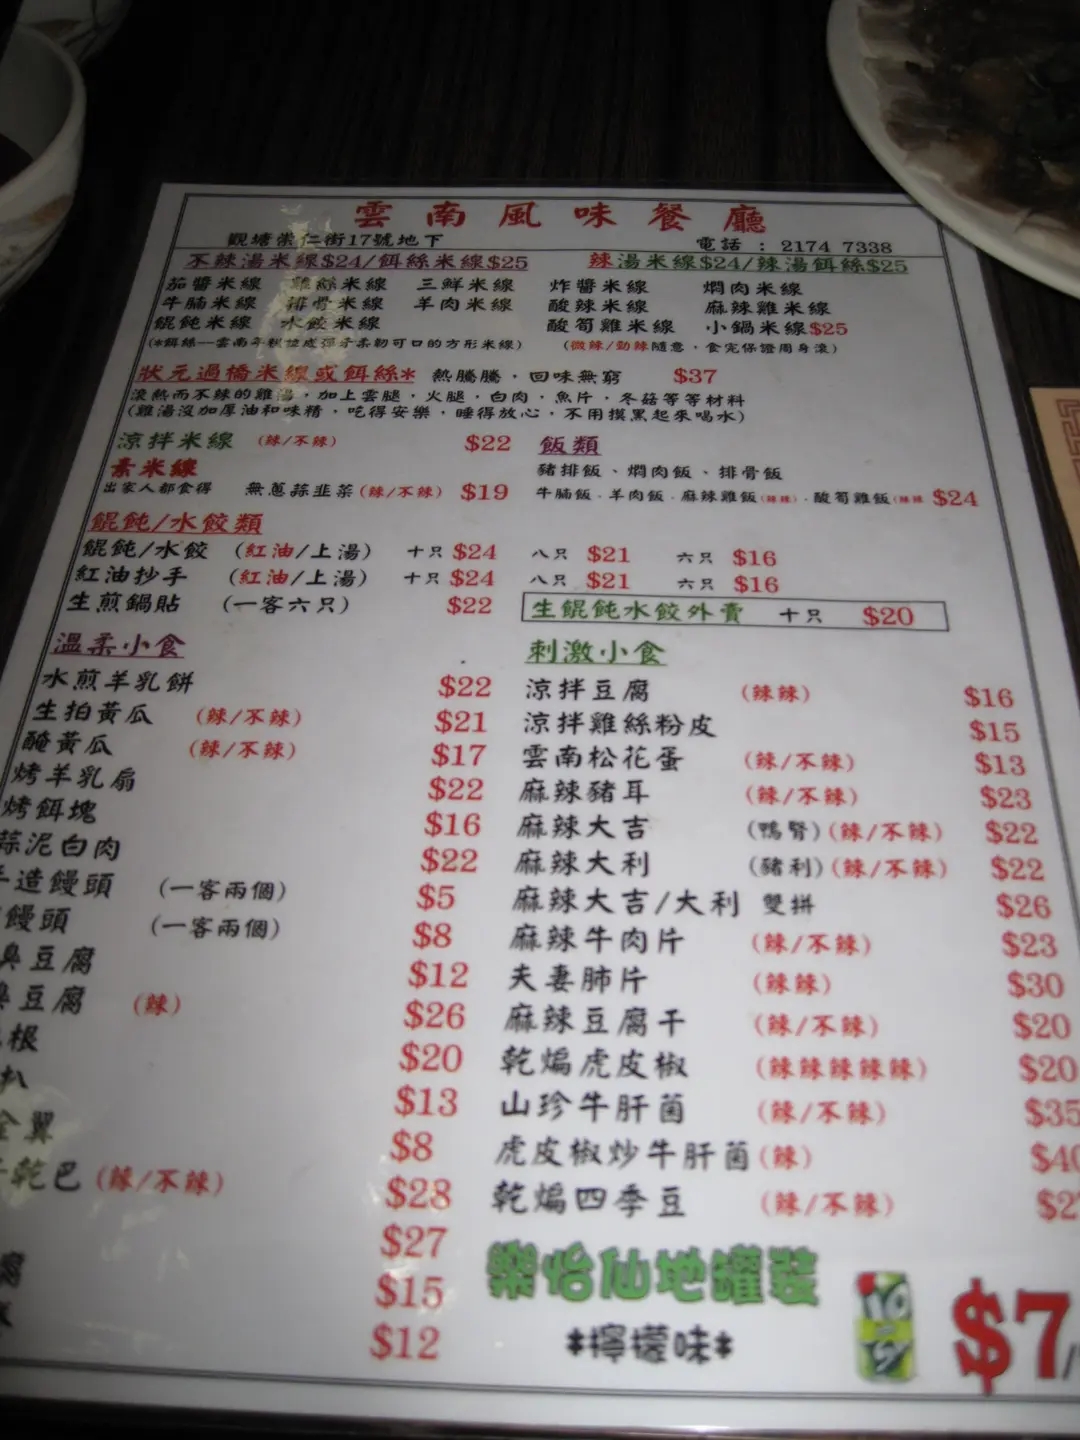 雲南風味餐廳
觀塘崇仁街17號地下 電話：2174 7338
不辣湯米線$24/餌絲米線$25 辣湯米線$24/辣湯餌絲$25
茄醬米線 雞絲米線 三鮮米線 炸醬米線 燜肉米線
牛腩米線 排骨米線 羊肉米線 酸辣米線 麻辣雞米線
餛飩米線 水餃米線 酸筍雞米線 小鍋米線$25
(*餌絲——雲南 可口的方形米線) (微辣/勁辣隨意，食完保證周身滾)
狀元過橋米線或餌絲* 熱騰騰，回味無窮 $37
滾熱而不辣的雞湯，加上雲腿，火腿，白肉，魚片，冬菇等等材料
(雞湯沒加厚油和味精，吃得安樂，睡得放心，不用摸黑起來喝水)
涼拌米線 (辣/不辣) $22 飯類
素米線 豬排飯、燜肉飯、排骨飯
出家人都食得 無蔥蒜韭菜(辣/不辣) $19 牛腩飯．羊肉飯．麻辣雞飯(辣辣)．酸筍雞飯(辣辣 $24
餛飩/水餃類
餛飩/水餃 (紅油/上湯) 十只 $24 八只 $21 六只 $16
紅油抄手 (紅油/上湯) 十只 $24 八只 $21 六只 $16
生煎鍋貼 (一客六只) $22 生餛飩水餃外賣 十只 $20
溫柔小食 刺激小食
水煎羊乳餅 $22 涼拌豆腐 (辣辣) $16
生拍黃瓜 (辣/不辣) $21 涼拌雞絲粉皮 $15
醃黃瓜 (辣/不辣) $17 雲南松花蛋 (辣/不辣) $13
烤羊乳扇 $22 麻辣豬耳 (辣/不辣) $23
烤餌塊 $16 麻辣大吉 (鴨腎)(辣/不辣) $22
蒜泥白肉 $22 麻辣大利 (豬利)(辣/不辣) $22
造饅頭 (一客兩個) $5 麻辣大吉/大利 雙拼 $26
饅頭 (一客兩個) $8 麻辣牛肉片 (辣/不辣) $23
臭豆腐 $12 夫妻肺片 (辣辣) $30
臭豆腐 (辣) $26 麻辣豆腐干 (辣/不辣) $20
根 $20 乾煸虎皮椒 (辣辣辣辣辣) $20
扒 $13 山珍牛肝菌 (辣/不辣) $35
全翼 $8 虎皮椒炒牛肝菌(辣) $40
乾巴 (辣/不辣) $28 乾煸四季豆 (辣/不辣) $2
$27
腐 $15 樂怡仙地罐裝 $7/
$12 *檸檬味*